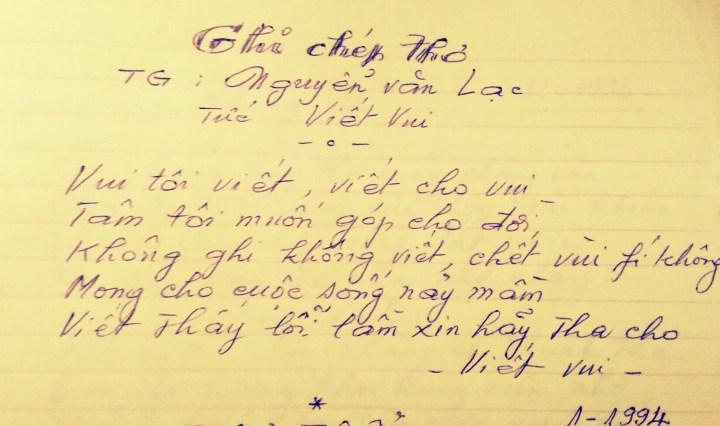 Ghi chép thơ
TG : Nguyễn văn Lạc
Tức Viết Vui
- o -
Vui tôi viết, viết cho vui
Tâm tôi muốn góp cho đời
Không ghi không viết, chết vùi fí không
Mong cho cuộc sống nảy mầm
Viết Thấy lỗi lầm xin hãy Tha cho
- Viết vui -
*
1-1994